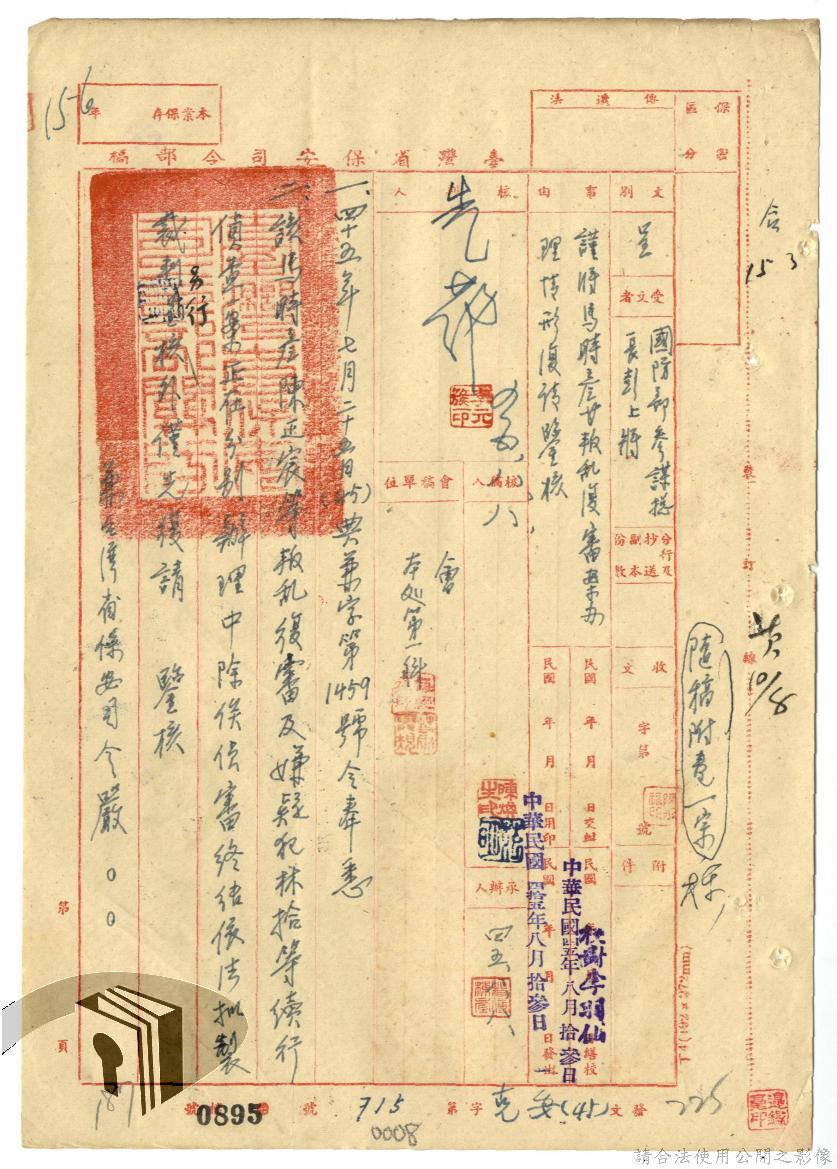 臺灣省保安司令部稿
保密
區分
傳遞法
本案保存 年
15-6
文別
呈
受文者
國防部參謀總
長彭上將
分行及
抄送副本
份數
事由
謹將馬時彥等叛亂復審案辦
理情形復請鑒核
收文 字第 號
附件
隨稿附卷一宗
黃 10/8
民國 年 月 日交辦
民國 年 月 日用印
中華民國四十五年八月拾參日
中華民國四十五年八月拾參日
校對李羽仙
核稿人
會稿單位
會
本处第一科
承辦人
一、四十五年七月二十五日(45)典兼字第1459號令奉悉
二、該馬時彥陳正宸等叛乱復審及嫌疑犯林拾等續行
偵查一案正在分別辦理中除俟偵審終結依法拟製
裁判書另行 核外謹先復請 鑒核
兼台灣省保安司令嚴○○
裝 訂 線
第 頁
發文 (45) 字第 715 號
檔號 0895
0008
225
187
T4(192×272mm)
請合法使用公開之影像